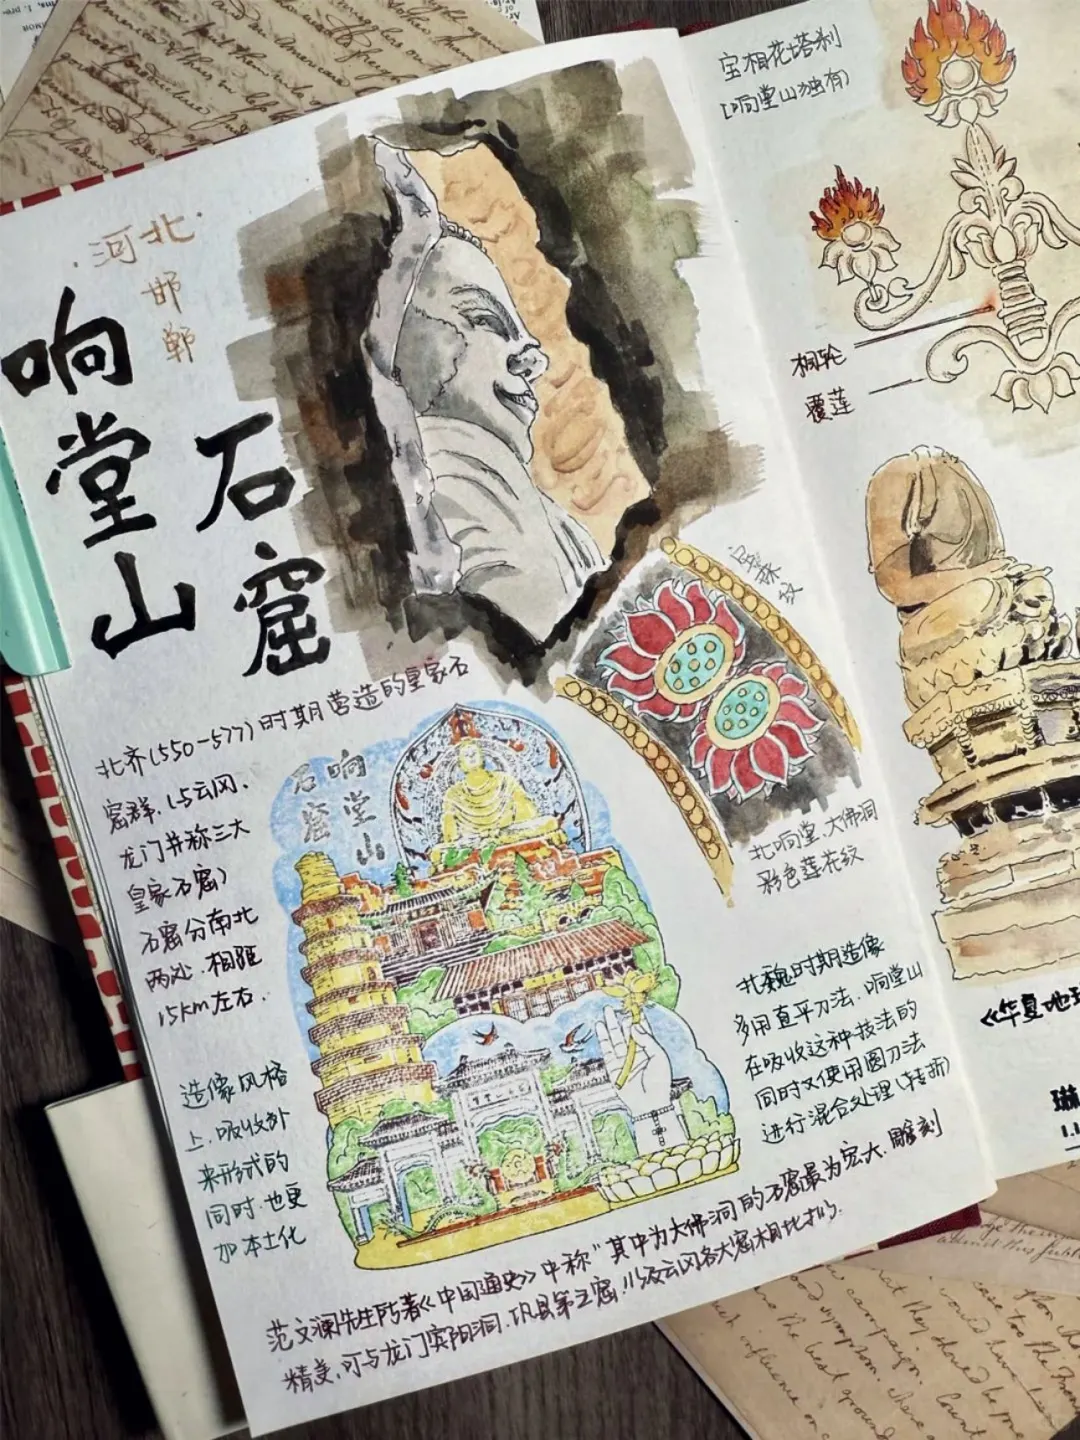 ·河北·
邯郸
响堂山
石窟
北齐(550-577)时期营造的皇家石
窟群.(与云冈.
龙门并称三大
皇家石窟)
石窟分南北
两处.相距
15km左右.
造像风格
上.吸收外
来形式的
同时.也更
加本土化
响堂山
石窟
联珠纹
北响堂.大佛洞
彩色莲花纹
北魏时期造像
多用直平刀法.响堂山
在吸收这种技法的
同时又使用圆刀法
进行混合处理(转折)
范文澜先生所著《中国通史》中称"其中为大佛洞的石窟最为宏大.雕刻
精美.可与龙门宾阳洞.巩县第三窟.以及云冈各大窟相比拟.
宝相花塔刹
(响堂山独有)
相轮
覆莲
《华夏地
1.1